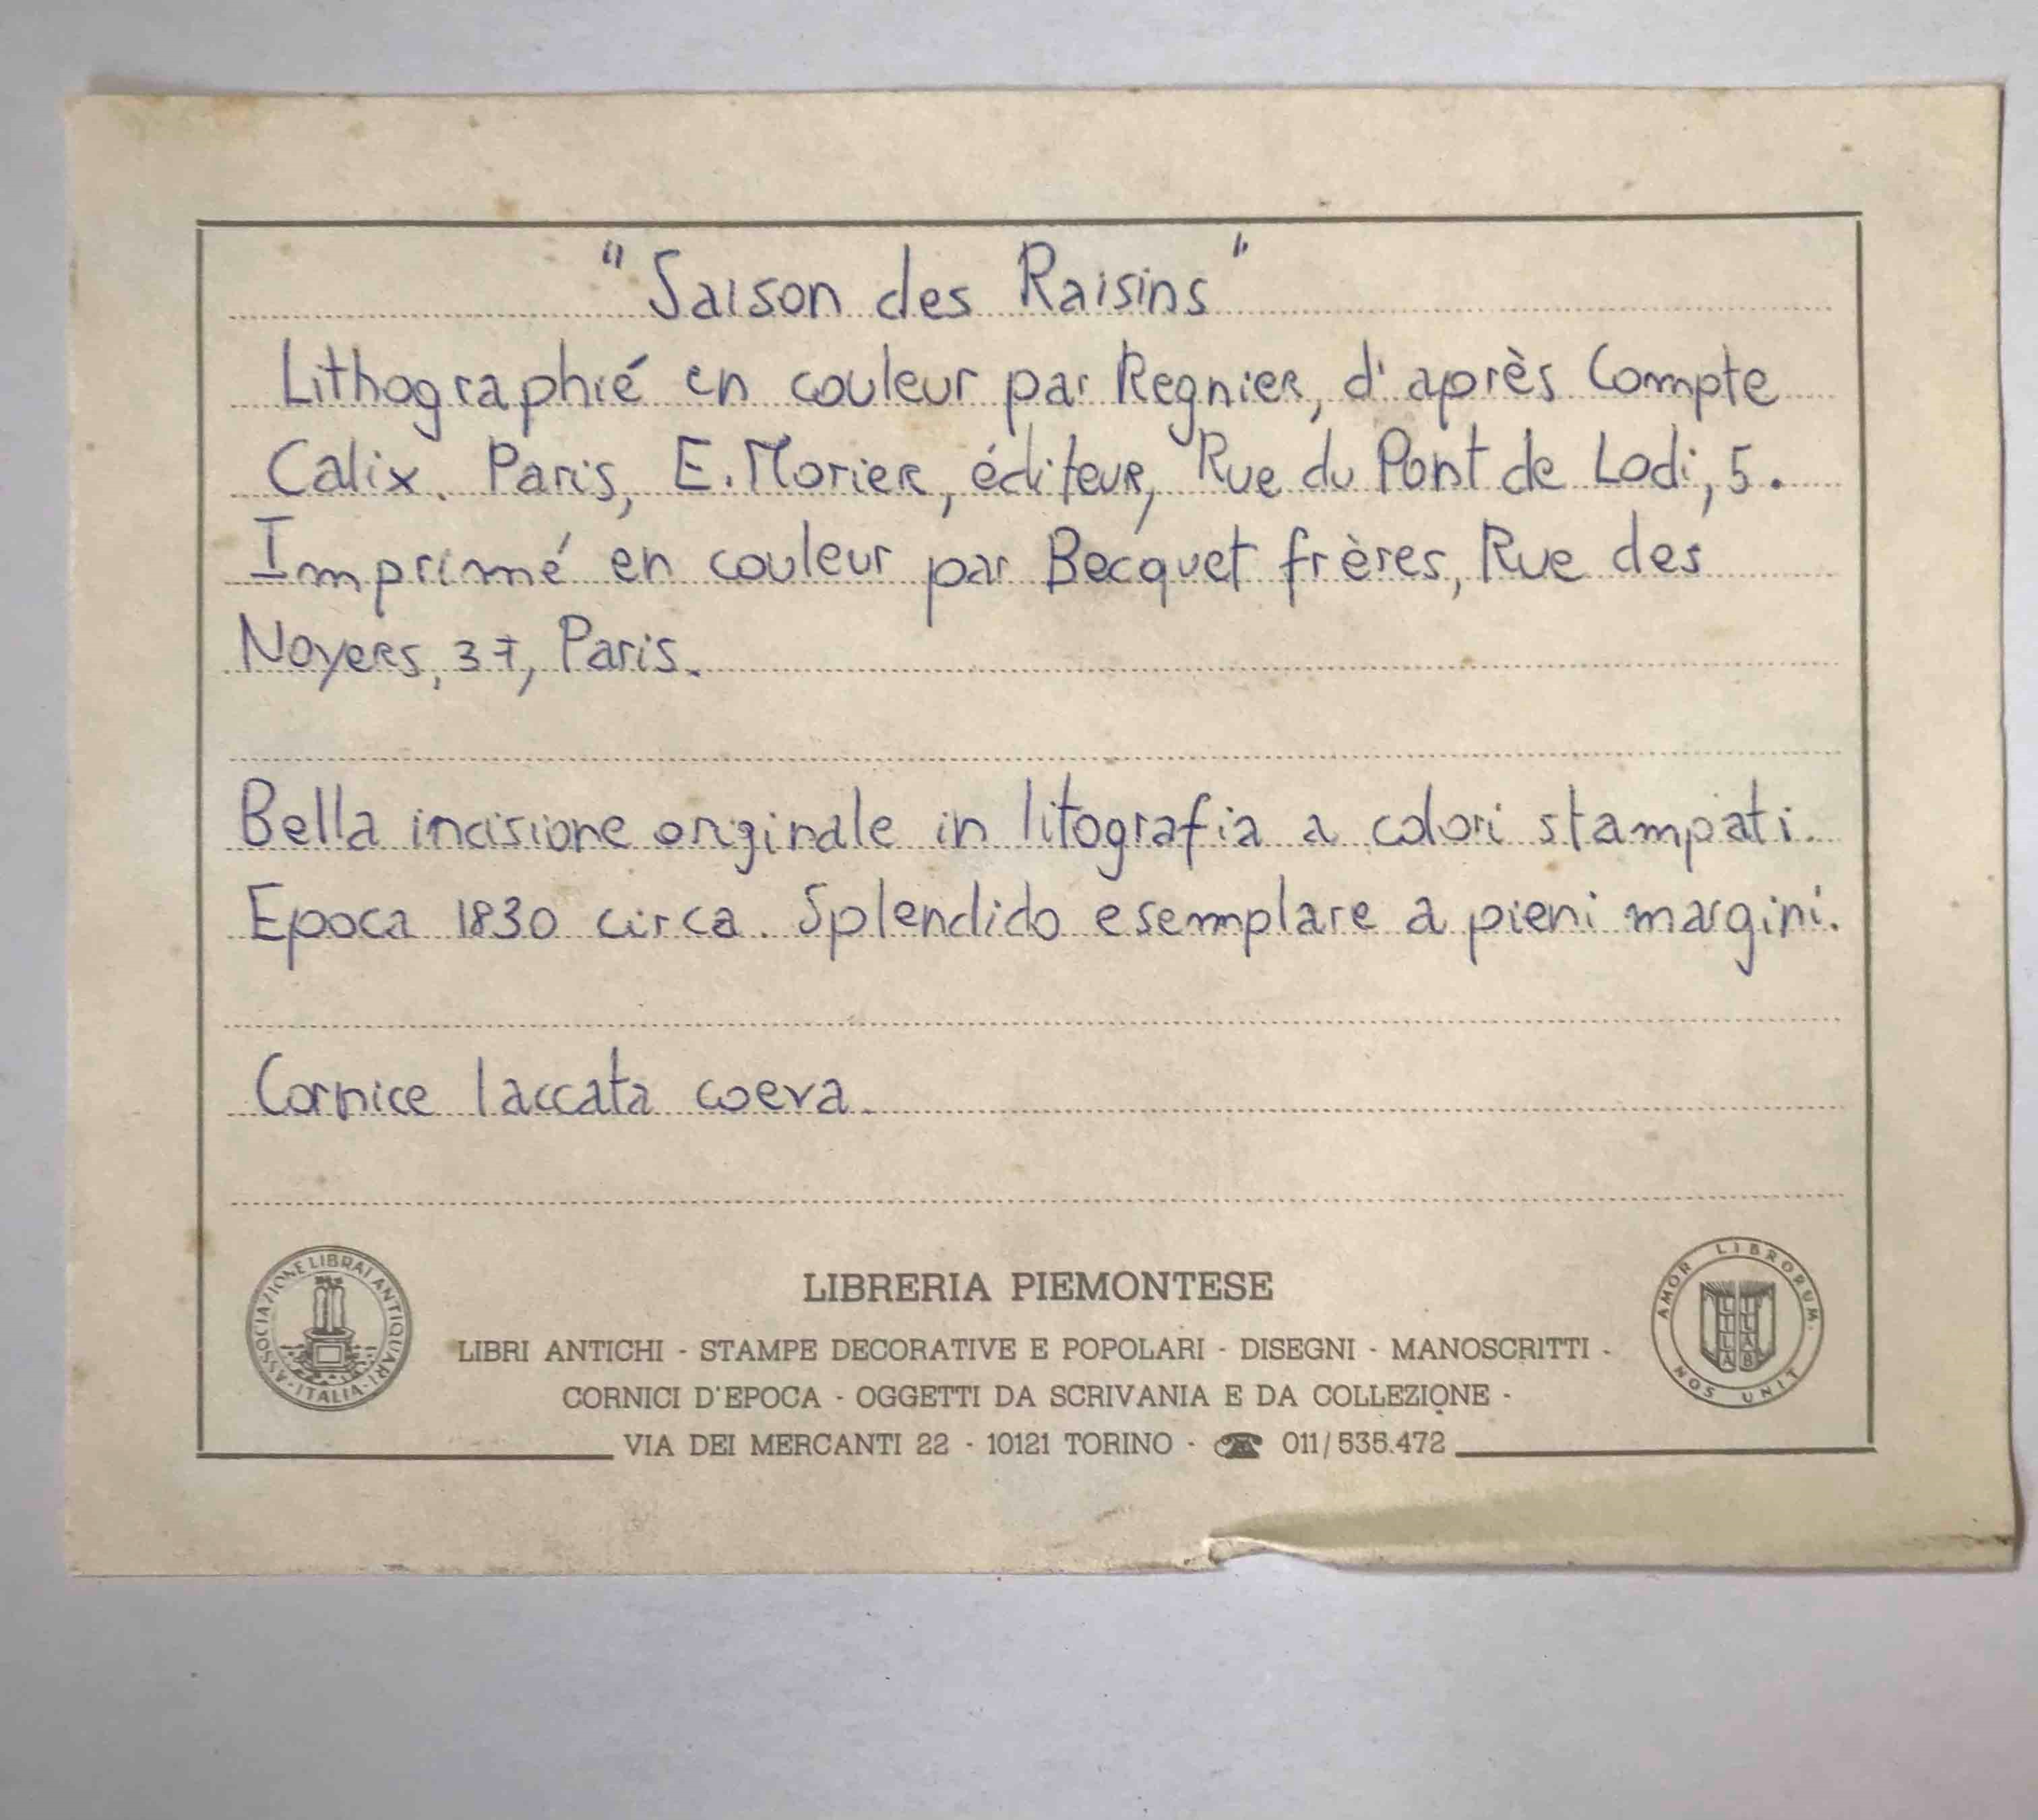 "Saison des Raisins"
Lithographié en couleur par Regnier, d'après Compte
Calix. Paris, E. Morier, éditeur, Rue du Pont de Lodi, 5.
Imprimé en couleur par Becquet frères, Rue des
Noyers, 37, Paris.
Bella incisione originale in litografia a colori stampati.
Epoca 1830 circa. Splendido esemplare a pieni margini.
Cornice laccata coeva.
ASSOCIAZIONE LIBRAI ANTIQUARI · ITALIA ·
AMOR LIBRORUM NOS UNIT
LILA ILAB
LIBRERIA PIEMONTESE
LIBRI ANTICHI - STAMPE DECORATIVE E POPOLARI - DISEGNI - MANOSCRITTI -
CORNICI D'EPOCA - OGGETTI DA SCRIVANIA E DA COLLEZIONE -
VIA DEI MERCANTI 22 - 10121 TORINO - ☎ 011/535.472